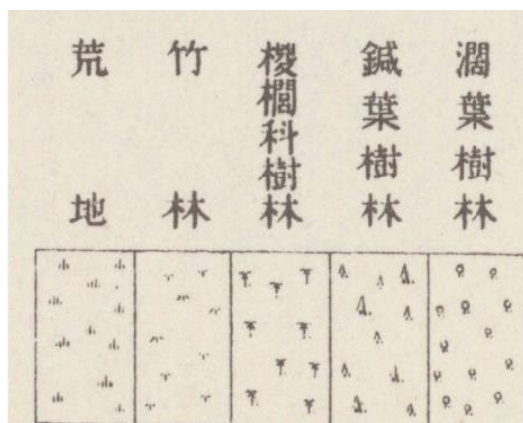 濶葉樹林
鍼葉樹林
椶櫚科樹林
竹林
荒地